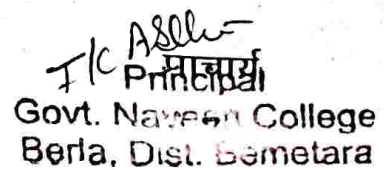 I/C
प्राचार्य
Principal
Govt. Naveen College
Berla, Dist. Bemetara